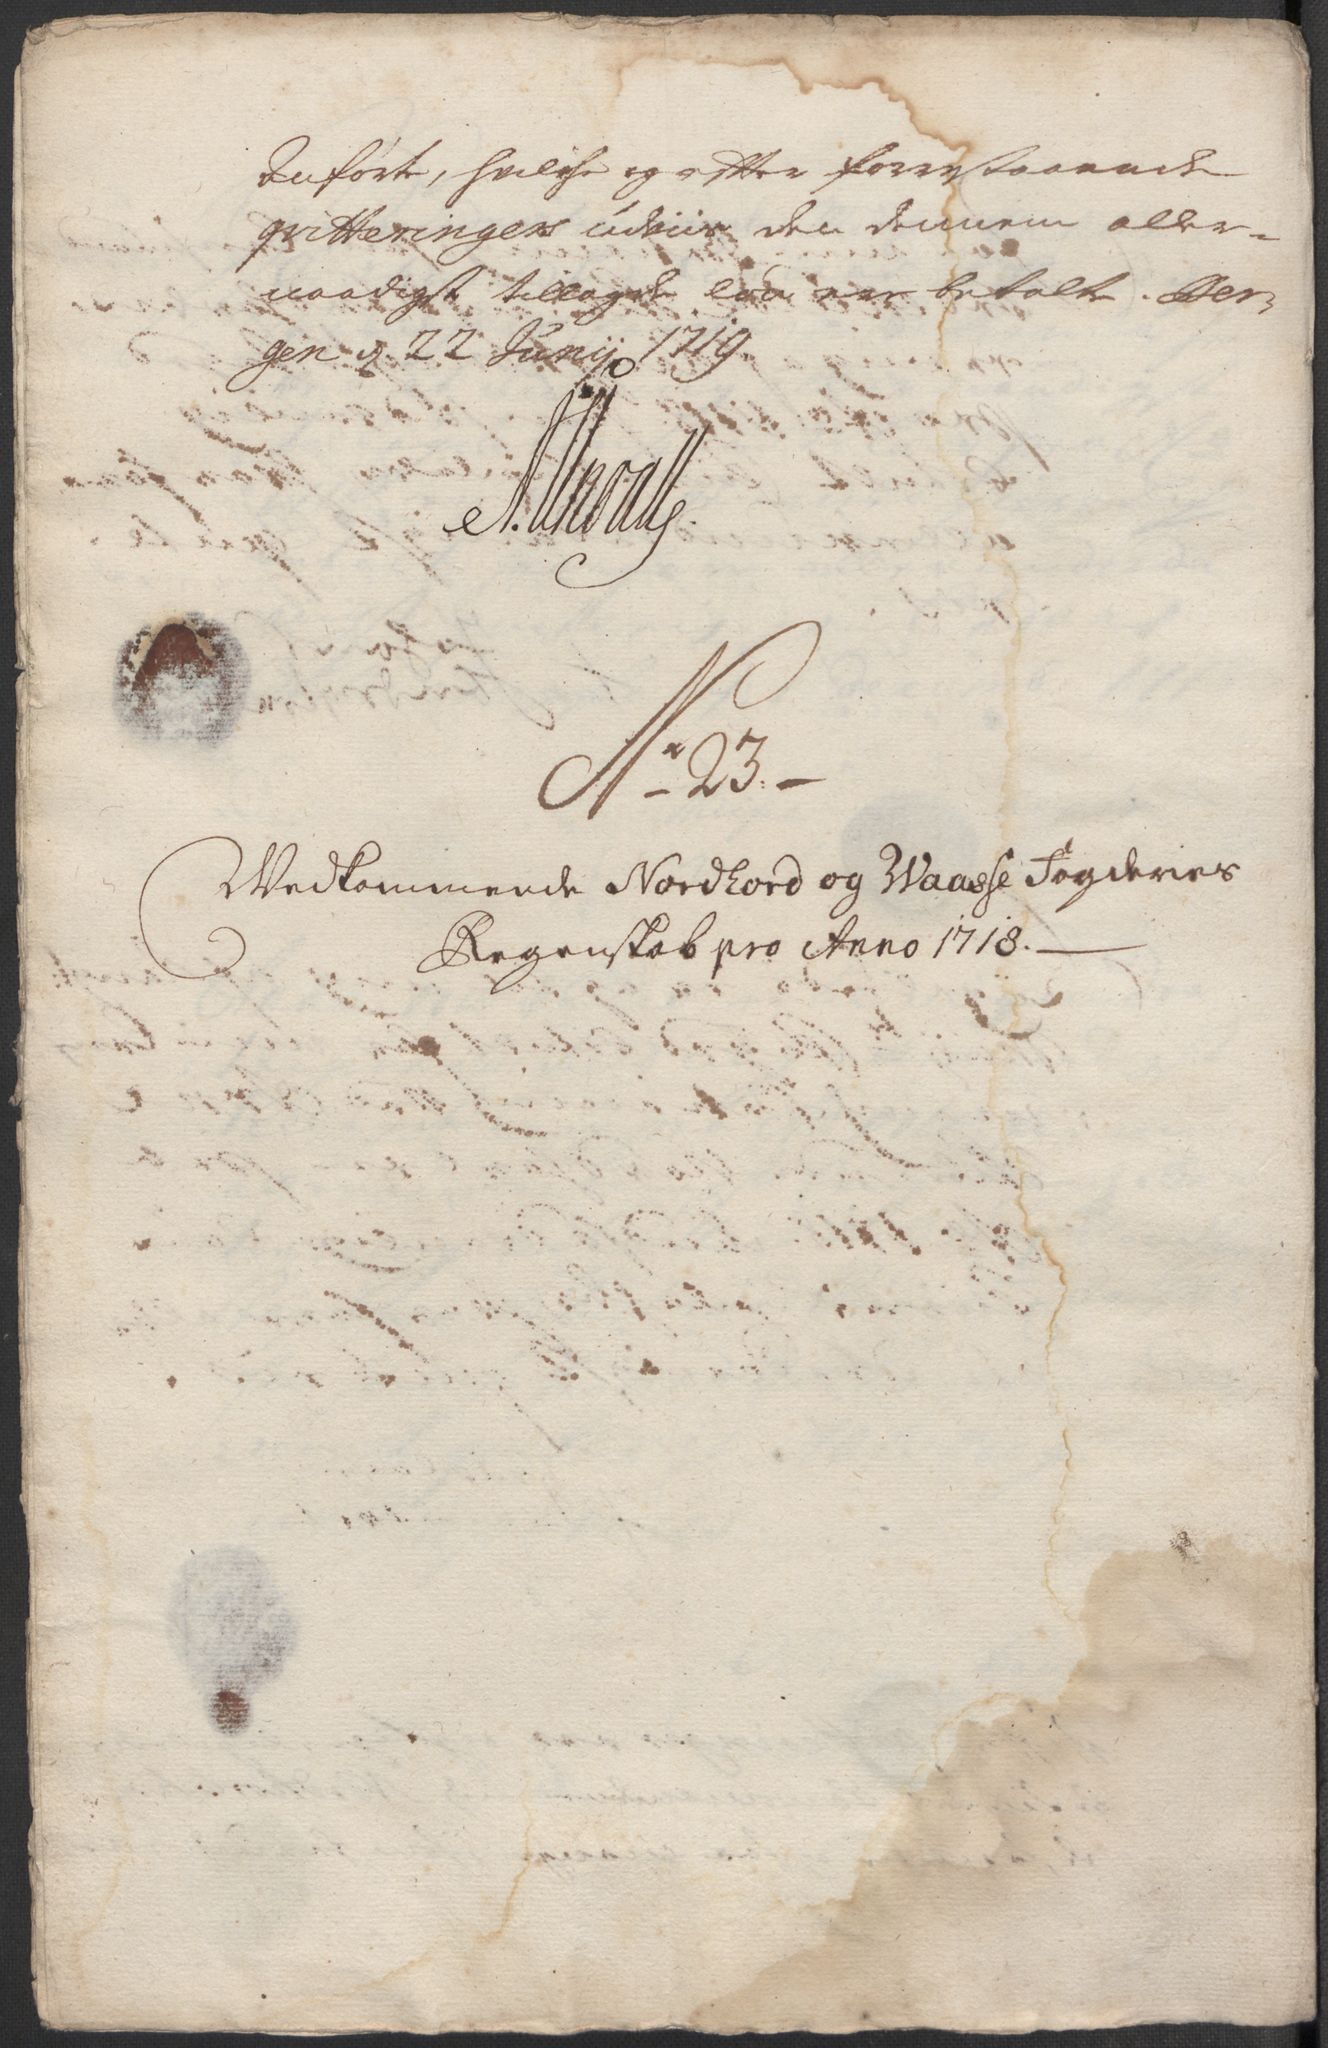 Inførte, hvilche og efter forrestaaende
qvitteringer udviis den dennem aller-
naadigst tillagde løn er betalt. Ber-
gen d 22 Junij 1719
No 23.
Wedkommende Nordhord og Waasse Fogderies
Regenskab pro Anno 1718.